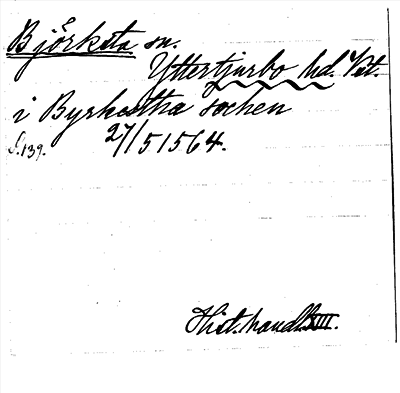 Björksta sn.
Yttertjurbo hd. Vst.
i Byrkestha sochen
S.139. 27/5 1564.
Hist. handl. XIII.